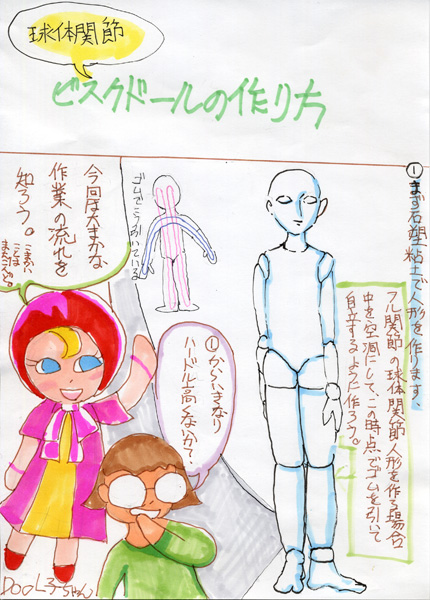 球体関節
ビスクドールの作り方
①まず石塑粘土で人形を作ります、
フル関節の球体関節人形を作る場合
中を空洞にして、この時点でゴムを引いて
自立するように作ろう。
ゴムでこう引いている
今回は大まかな
作業の流れを
知ろう。
こまかい
ことは
またこんど。
①からいきなり
ハードル高くないかて、